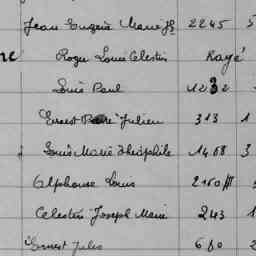 Jean Eugène Marie Jh 2245 5
re Roger Louis Celestin Rayé
Louis Paul 1232
Ernest Julien 313 1
Louis Marie Théophile 1468 3
Alphonse Louis 2160
Celestin Joseph Marie 243 1
Ernest Jules 680 2